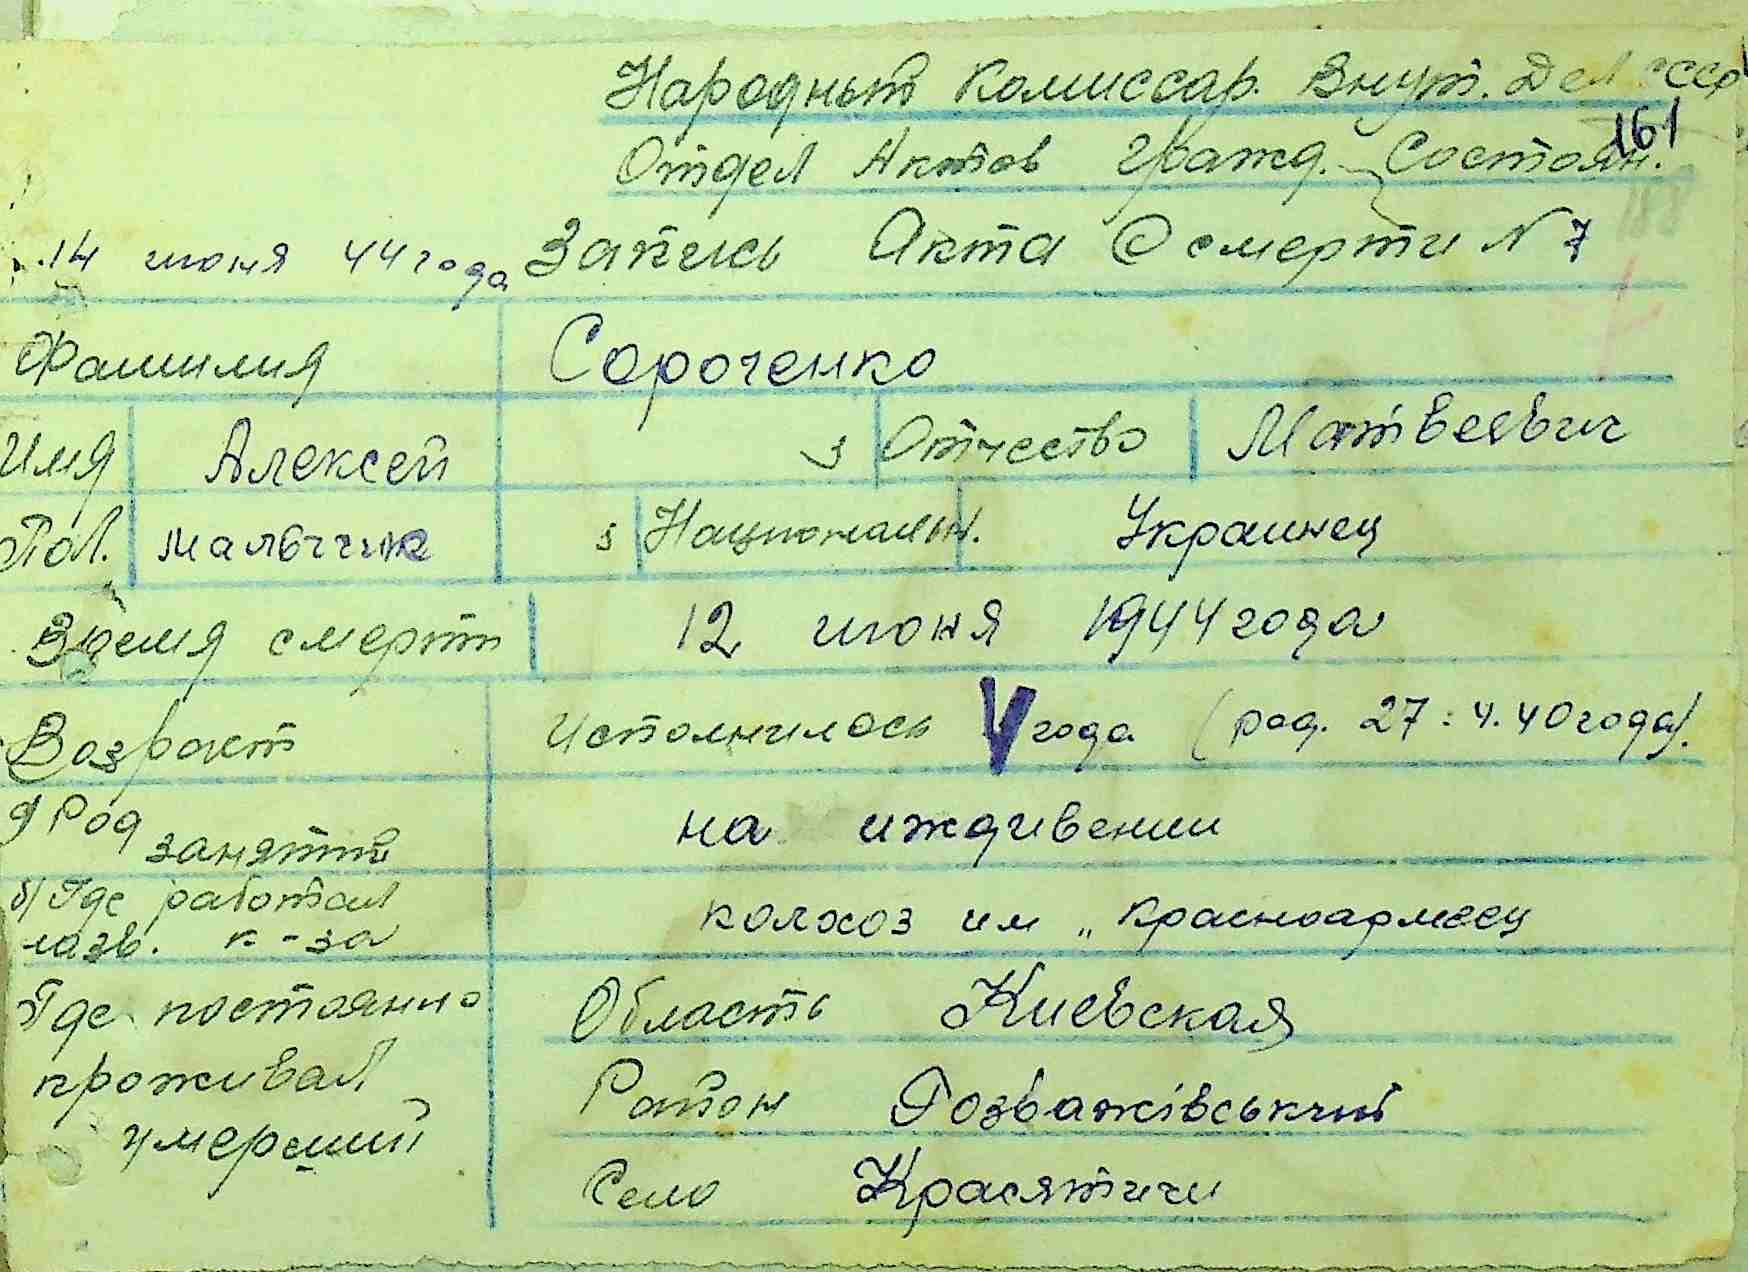 Народный Комиссар. Внут. Дел СССР
161
Отдел Актов Гражд. Состоян.
188
14 июня 44 года Запись Акта О смерти N 7
Фамилия Сороченко
Имя Алексей 3 Отчество Матвеевич
Пол. мальчик 5 Национальн. Украинец
Время смерти 12 июня 1944 года
Возраст Исполнилось V года (род. 27:4.40 года).
а) Род занятий на иждивении
б) Где работал назв. к-за колхоз им „Красноармеец
Где постоянно Область Киевская
проживал Район Розважівський
умерший Село Красятичи